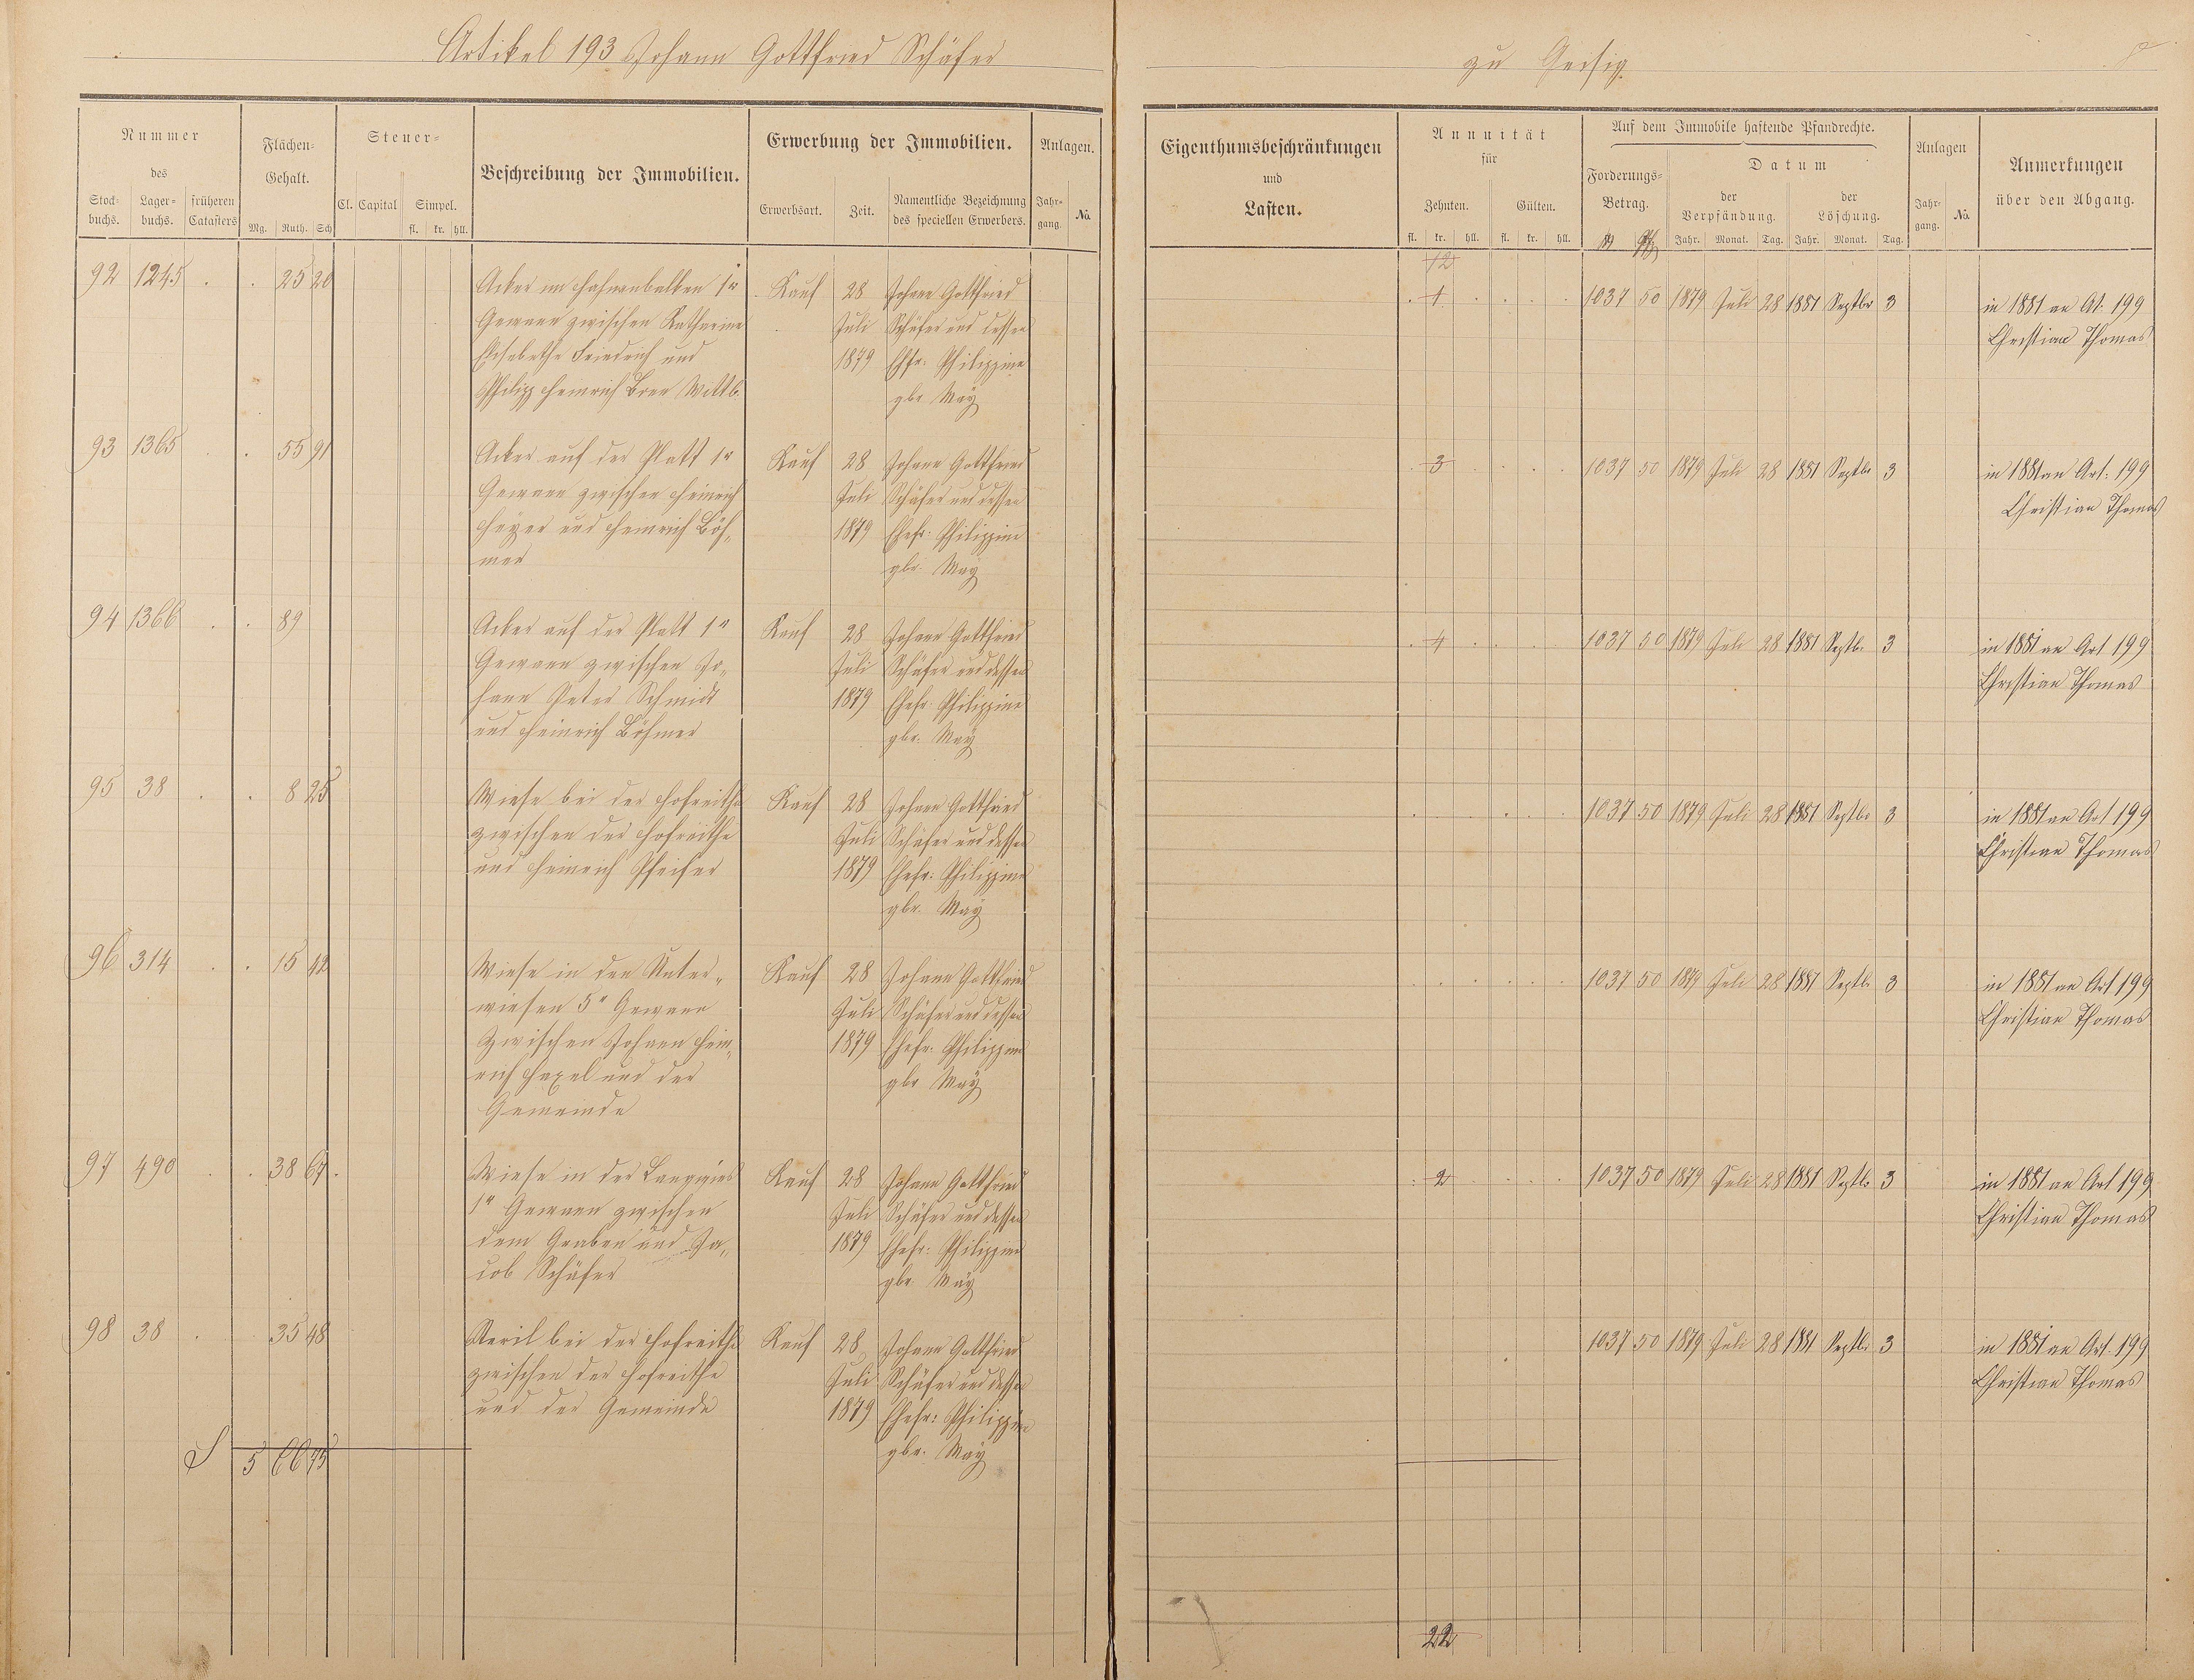 Artikel 193 Johann Gottfried Schäfer
zu Geisig.
Nummer
des
Stock-
buchs.
Lager-
buchs.
früheren
Catasters
Flächen-
Gehalt.
Mg. Ruth. Sch
Steuer-
Cl. Capital
Simpel.
fl. kr. hll.
Beschreibung der Immobilien.
Erwerbung der Immobilien.
Erwerbsart.
Zeit.
Namentliche Bezeichnung
des speciellen Erwerbers.
Anlagen.
Jahr-
gang.
No.
Eigenthumsbeschränkungen
und
Lasten.
Annuität
für
Zehnten.
Gülten.
fl. kr. hll. fl. kr. hll.
Auf dem Immobile haftende Pfandrechte.
Forderungs-
Betrag.
Datum
der
Verpfändung.
der
Löschung.
Jahr. Monat. Tag. Jahr. Monat. Tag.
Anlagen
Jahr-
gang.
No.
Anmerkungen
über den Abgang.
12
92 1245 . . 25 20
Acker im Hahnenbalken 1r
Gewann zwischen Katharine
Elisabethe Friedrich und
Philipp Heinrich Wittb.
Kauf
28
Juli
1879
Johann Gottfried
Schäfer und dessen
Ehfr. Philippine
gbr May
1
1037 50 1879 Juli 28 1881 Septbr 3
in 1881 an At. 199
Christian Thomas
93 1365 . . 55 91
Acker auf der Platt 1r
Gewann zwischen Heinrich
Heyer und Heinrich Böh-
mer
Kauf
28
Juli
1879
Johann Gottfried
Schäfer und dessen
Ehefr. Philippine
gbr. May
3
1037 50 1879 Juli 28 1881 Septbr 3
in 1881 an Art. 199
Christian Thomas
94 1366 . . 89
Acker auf der Platt 1r
Gewann zwischen Jo-
hann Peter Schmidt
und Heinrich Böhmer
Kauf
28
Juli
1879
Johann Gottfried
Schäfer und dessen
Ehefr. Philippine
gbr. May
4
1037 50 1879 Juli 28 1881 Septbr 3
in 1881 an Art 199
Christian Thomas
95 38 . . 8 25
Wiese bei der Hofreithe
zwischen der Hofreithe
und Heinrich Pfeifer
Kauf
28
Juli
1879
Johann Gottfried
Schäfer und dessen
Ehefr. Philippine
gbr. May
1037 50 1879 Juli 28 1881 Septbr 3
in 1881 an Art 199
Christian Thomas
96 314 . . 15 42
Wiese in den Unter-
wiesen 5r Gewann
zwischen Johann Hein-
rich Hexel und der
Gemeinde
Kauf
28
Juli
1879
Johann Gottfried
Schäfer und dessen
Ehefr. Philippine
gbr May
1037 50 1879 Juli 28 1881 Septbr 3
in 1881 an Art 199
Christian Thomas
97 490 . . 38 67
Wiese in der Langwies
1r Gewann zwischen
dem Graben und Ja-
cob Schäfer
Kauf
28
Juli
1879
Johann Gottfried
Schäfer und dessen
Ehefr. Philippine
gbr May
2
1037 50 1879 Juli 28 1881 Septbr 3
in 1881 an Art 199
Christian Thomas
98 38 . 35 48
bei der Hofreithe
zwischen der Hofreithe
und der Gemeinde
Kauf
28
Juli
1879
Johann Gottfried
Schäfer und dessen
Ehefr. Philippine
gbr. May
1037 50 1879 Juli 28 1881 Septbr 3
in 1881 an Art. 199
Christian Thomas
S 5 66 75
22